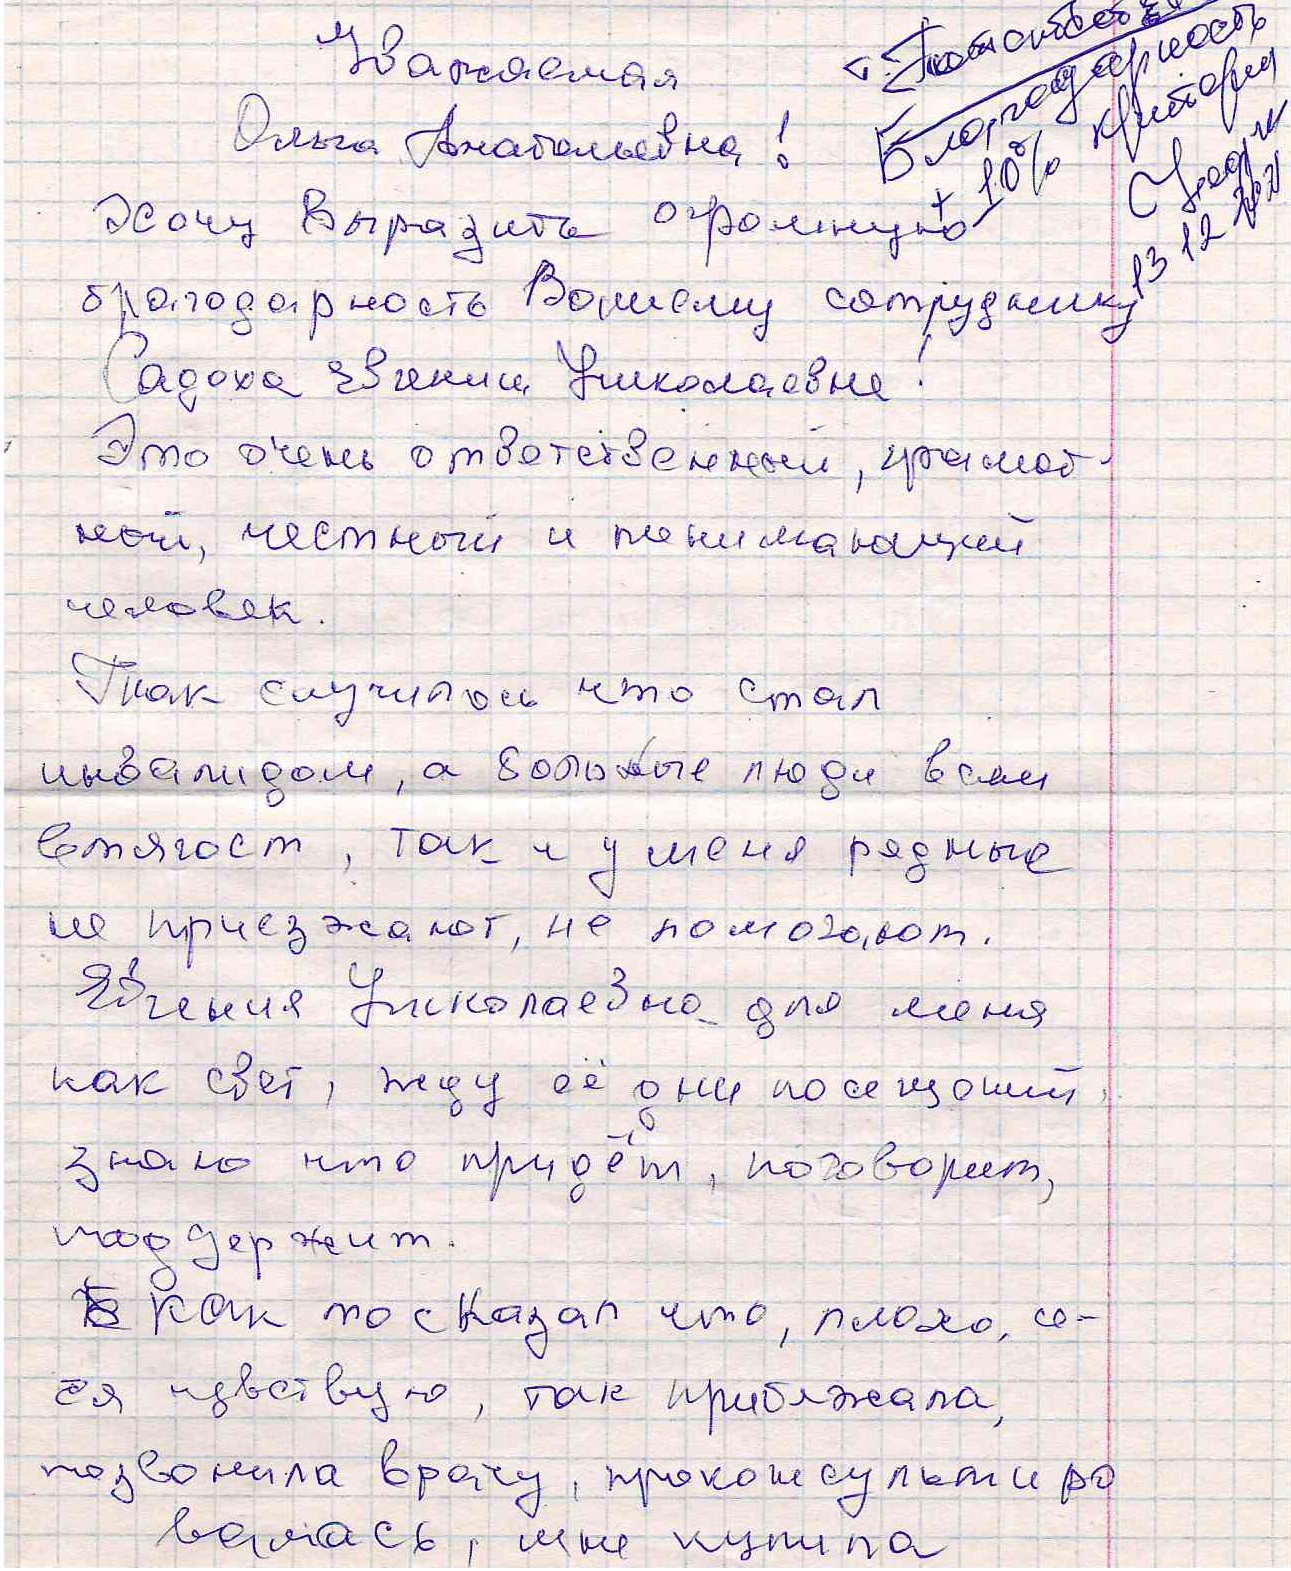 Уважаемая
Ольга Анатольевна!
Благодарность
+ 10% критерии
13 12
Хочу выразить огромную
благодарность Вашему сотруднику
Садоха Евгении Николаевне!
Это очень ответственный, грамот-
ный, честный и понимающий
человек.
Так случилось что стал
инвалидом, а больные люди всем
втягост, так и у меня родные
не приезжают, не помогают.
Евгения Николаевна для меня
как свет, жду её дни посещений,
знаю что придёт, поговорит,
поддержит.
как то сказал что, плохо, се-
бя чувствую, так прибежала,
позвонила врачу, проконсультиро
валась, мне купила